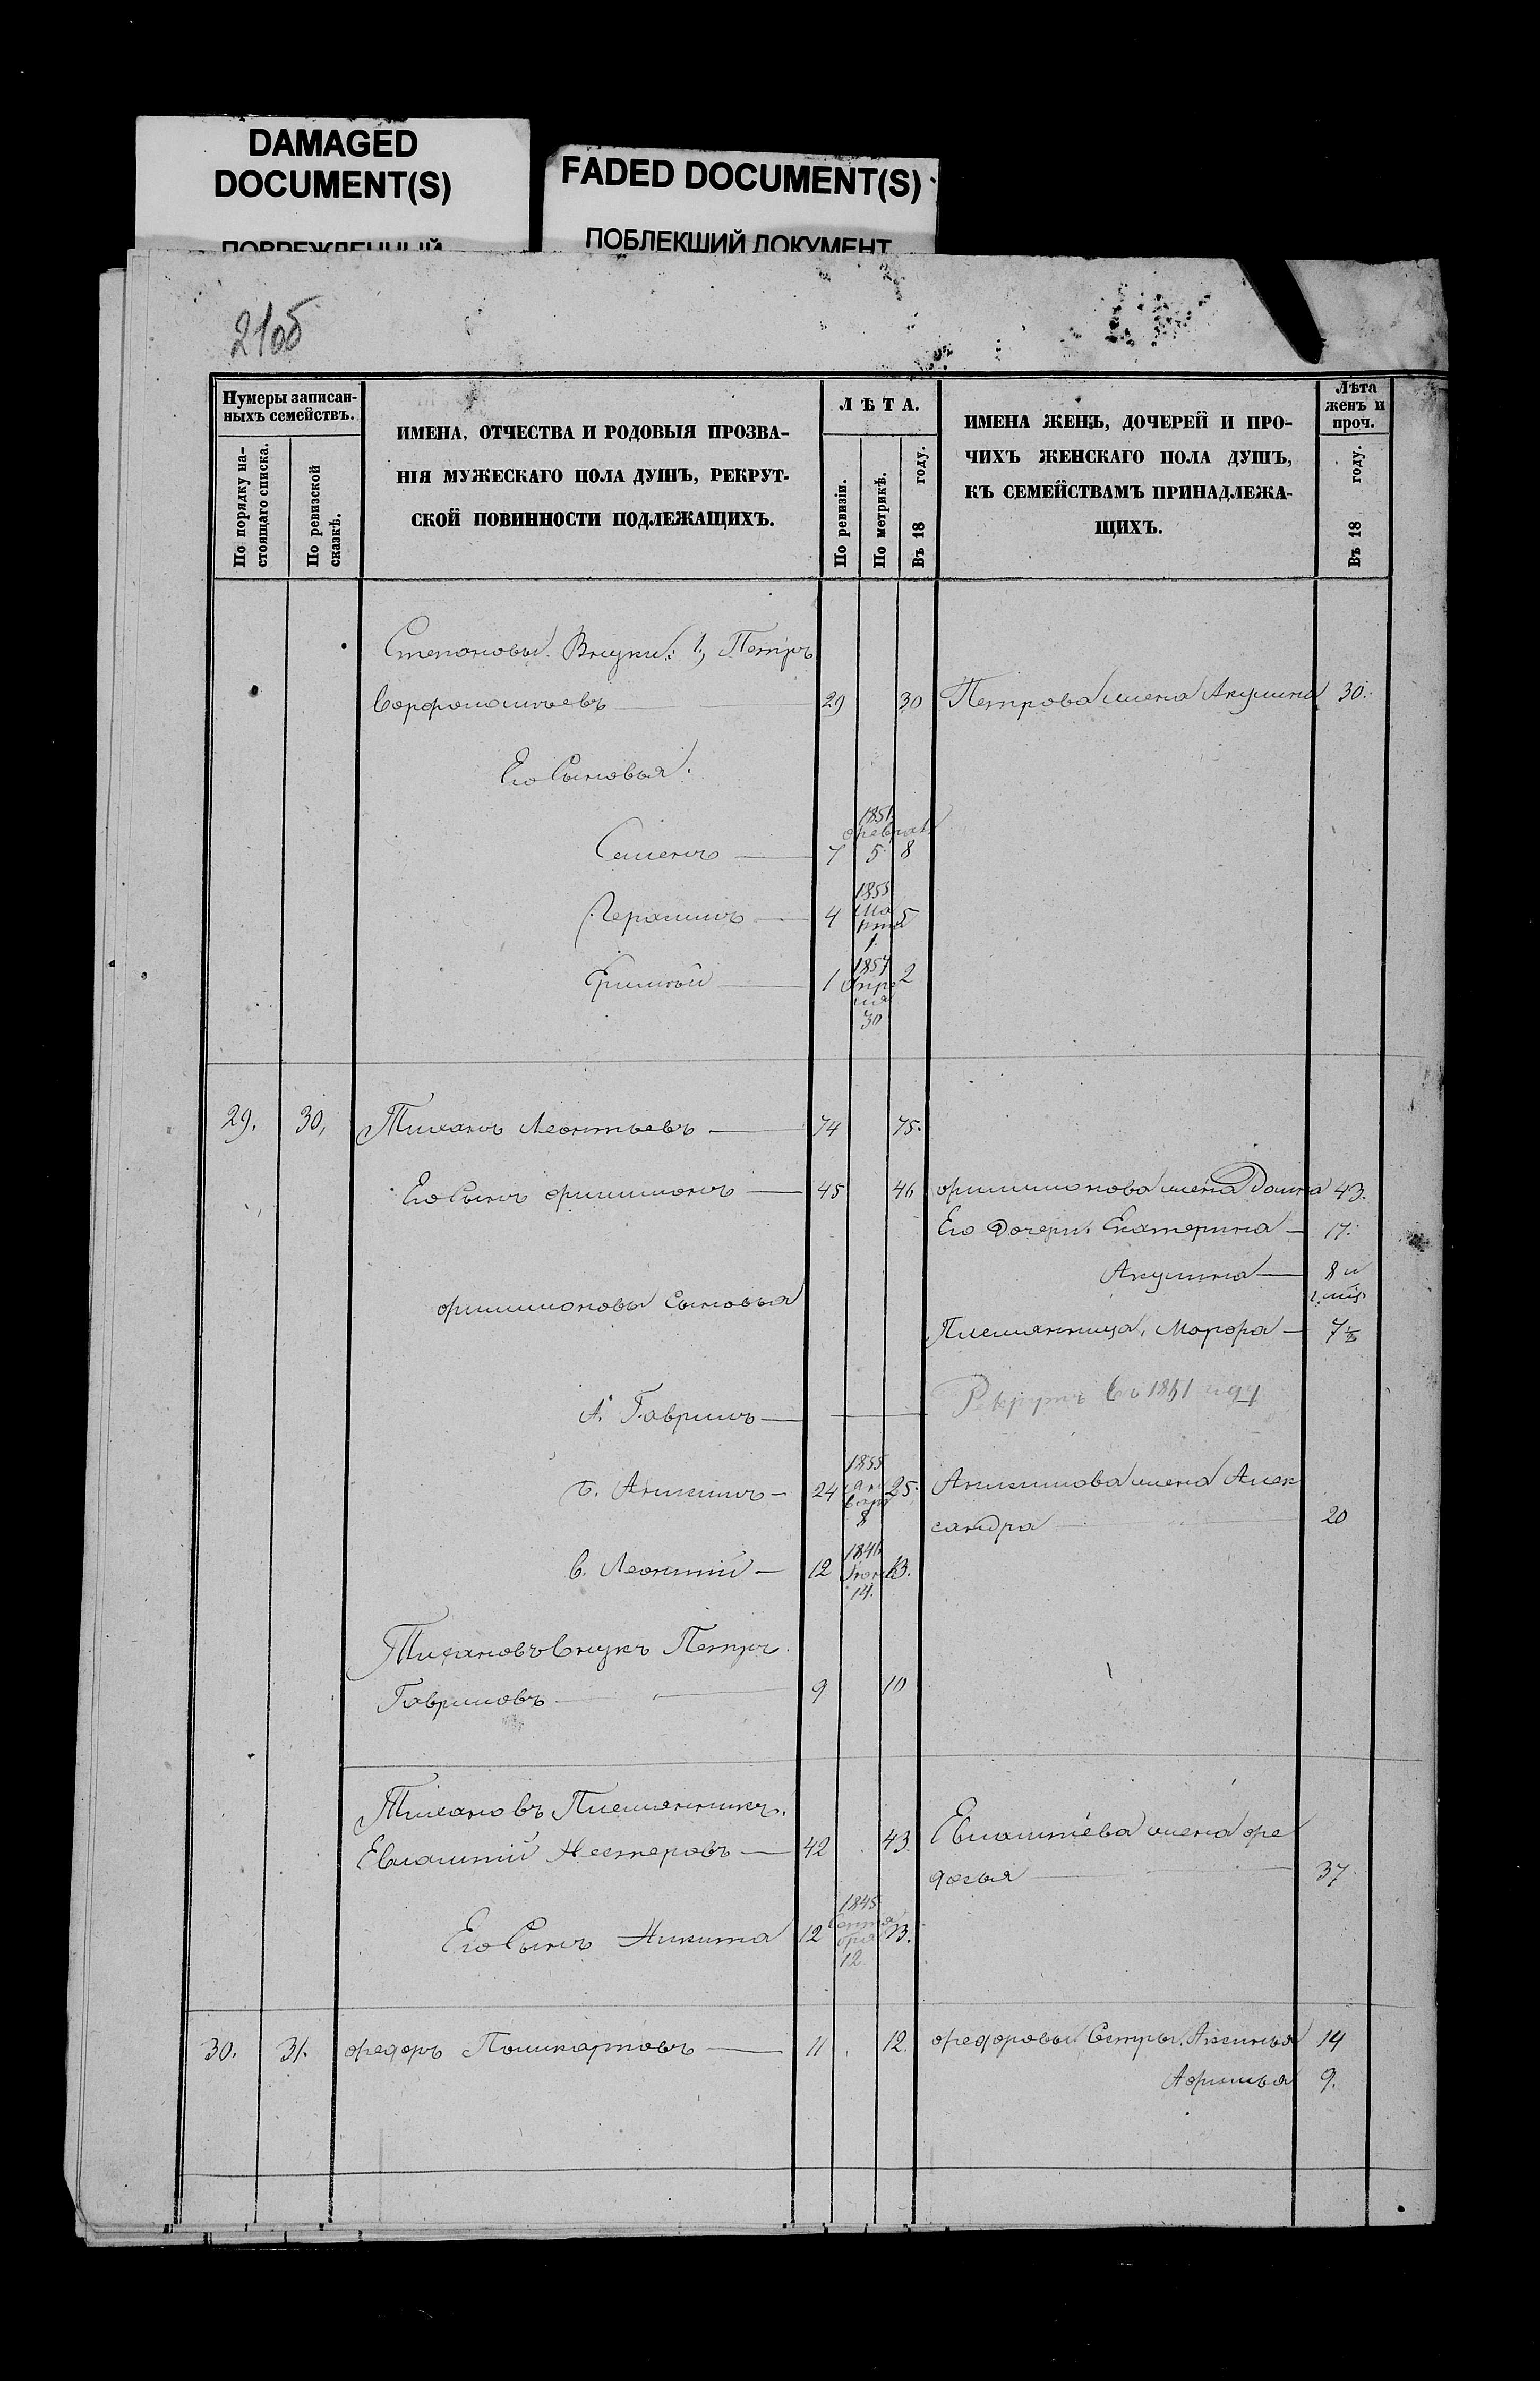 DAMAGED
DOCUMENT(S)
ПОВРЕЖДЕННЫЙ
FADED DOCUMENT(S)
ПОБЛЕКШИЙ ДОКУМЕНТ
21об
Нумеры записан-
ныхъ семействъ.
По порядку на-
стоящаго списка.
По ревизской
сказкѣ.
ИМЕНА, ОТЧЕСТВА И РОДОВЫЯ ПРОЗВА-
НІЯ МУЖЕСКАГО ПОЛА ДУШЪ, РЕКРУТ-
СКОЙ ПОВИННОСТИ ПОДЛЕЖАЩИХЪ.
ЛѢТА.
По ревизіи.
По метрикѣ.
Въ 18 году.
ИМЕНА ЖЕНЪ, ДОЧЕРЕЙ И ПРО-
ЧИХЪ ЖЕНСКАГО ПОЛА ДУШЪ,
КЪ СЕМЕЙСТВАМЪ ПРИНАДЛЕЖА-
ЩИХЪ.
Лѣта
женъ и
проч.
Въ 18 году.
Степановы Внуки: 1, Петръ
Ворфоломѣевъ 29 30 Петрова жена Акулина 30.
Его Сыновья.
1851
февраля
Семенъ 7 5 8
1855
Марта
4 5
1
1857
1 Апреля 2
30
29. 30. Тиханъ Леонтьевъ 74 75.
Его Сынъ Филимонъ 45 46 Филимонова жена Домна 43.
Его Дочери. Екатерина 17.
Акулина 8 и
Филимоновы Сыновья
Племянница, Марфа 7½
А. Гаврилъ Рекрутъ въ году
1833
Б. Акимъ 24 25. Акимова жена Алек
8
сандра 20
В. Леонтий 12 13.
14.
Тихановъ внукъ Петръ
Гавриловъ 9 10
Тихановъ Племянникъ.
Евлампий Нестеровъ 42 43. Евлампиева жена Фе
досья 37
1845
Сентя
Его Сынъ Никита 12 бря 13.
12
30. 31. Федоръ Поликарповъ 11 12. Федоровы Сестры. Аксинья 14
Афимья 9.